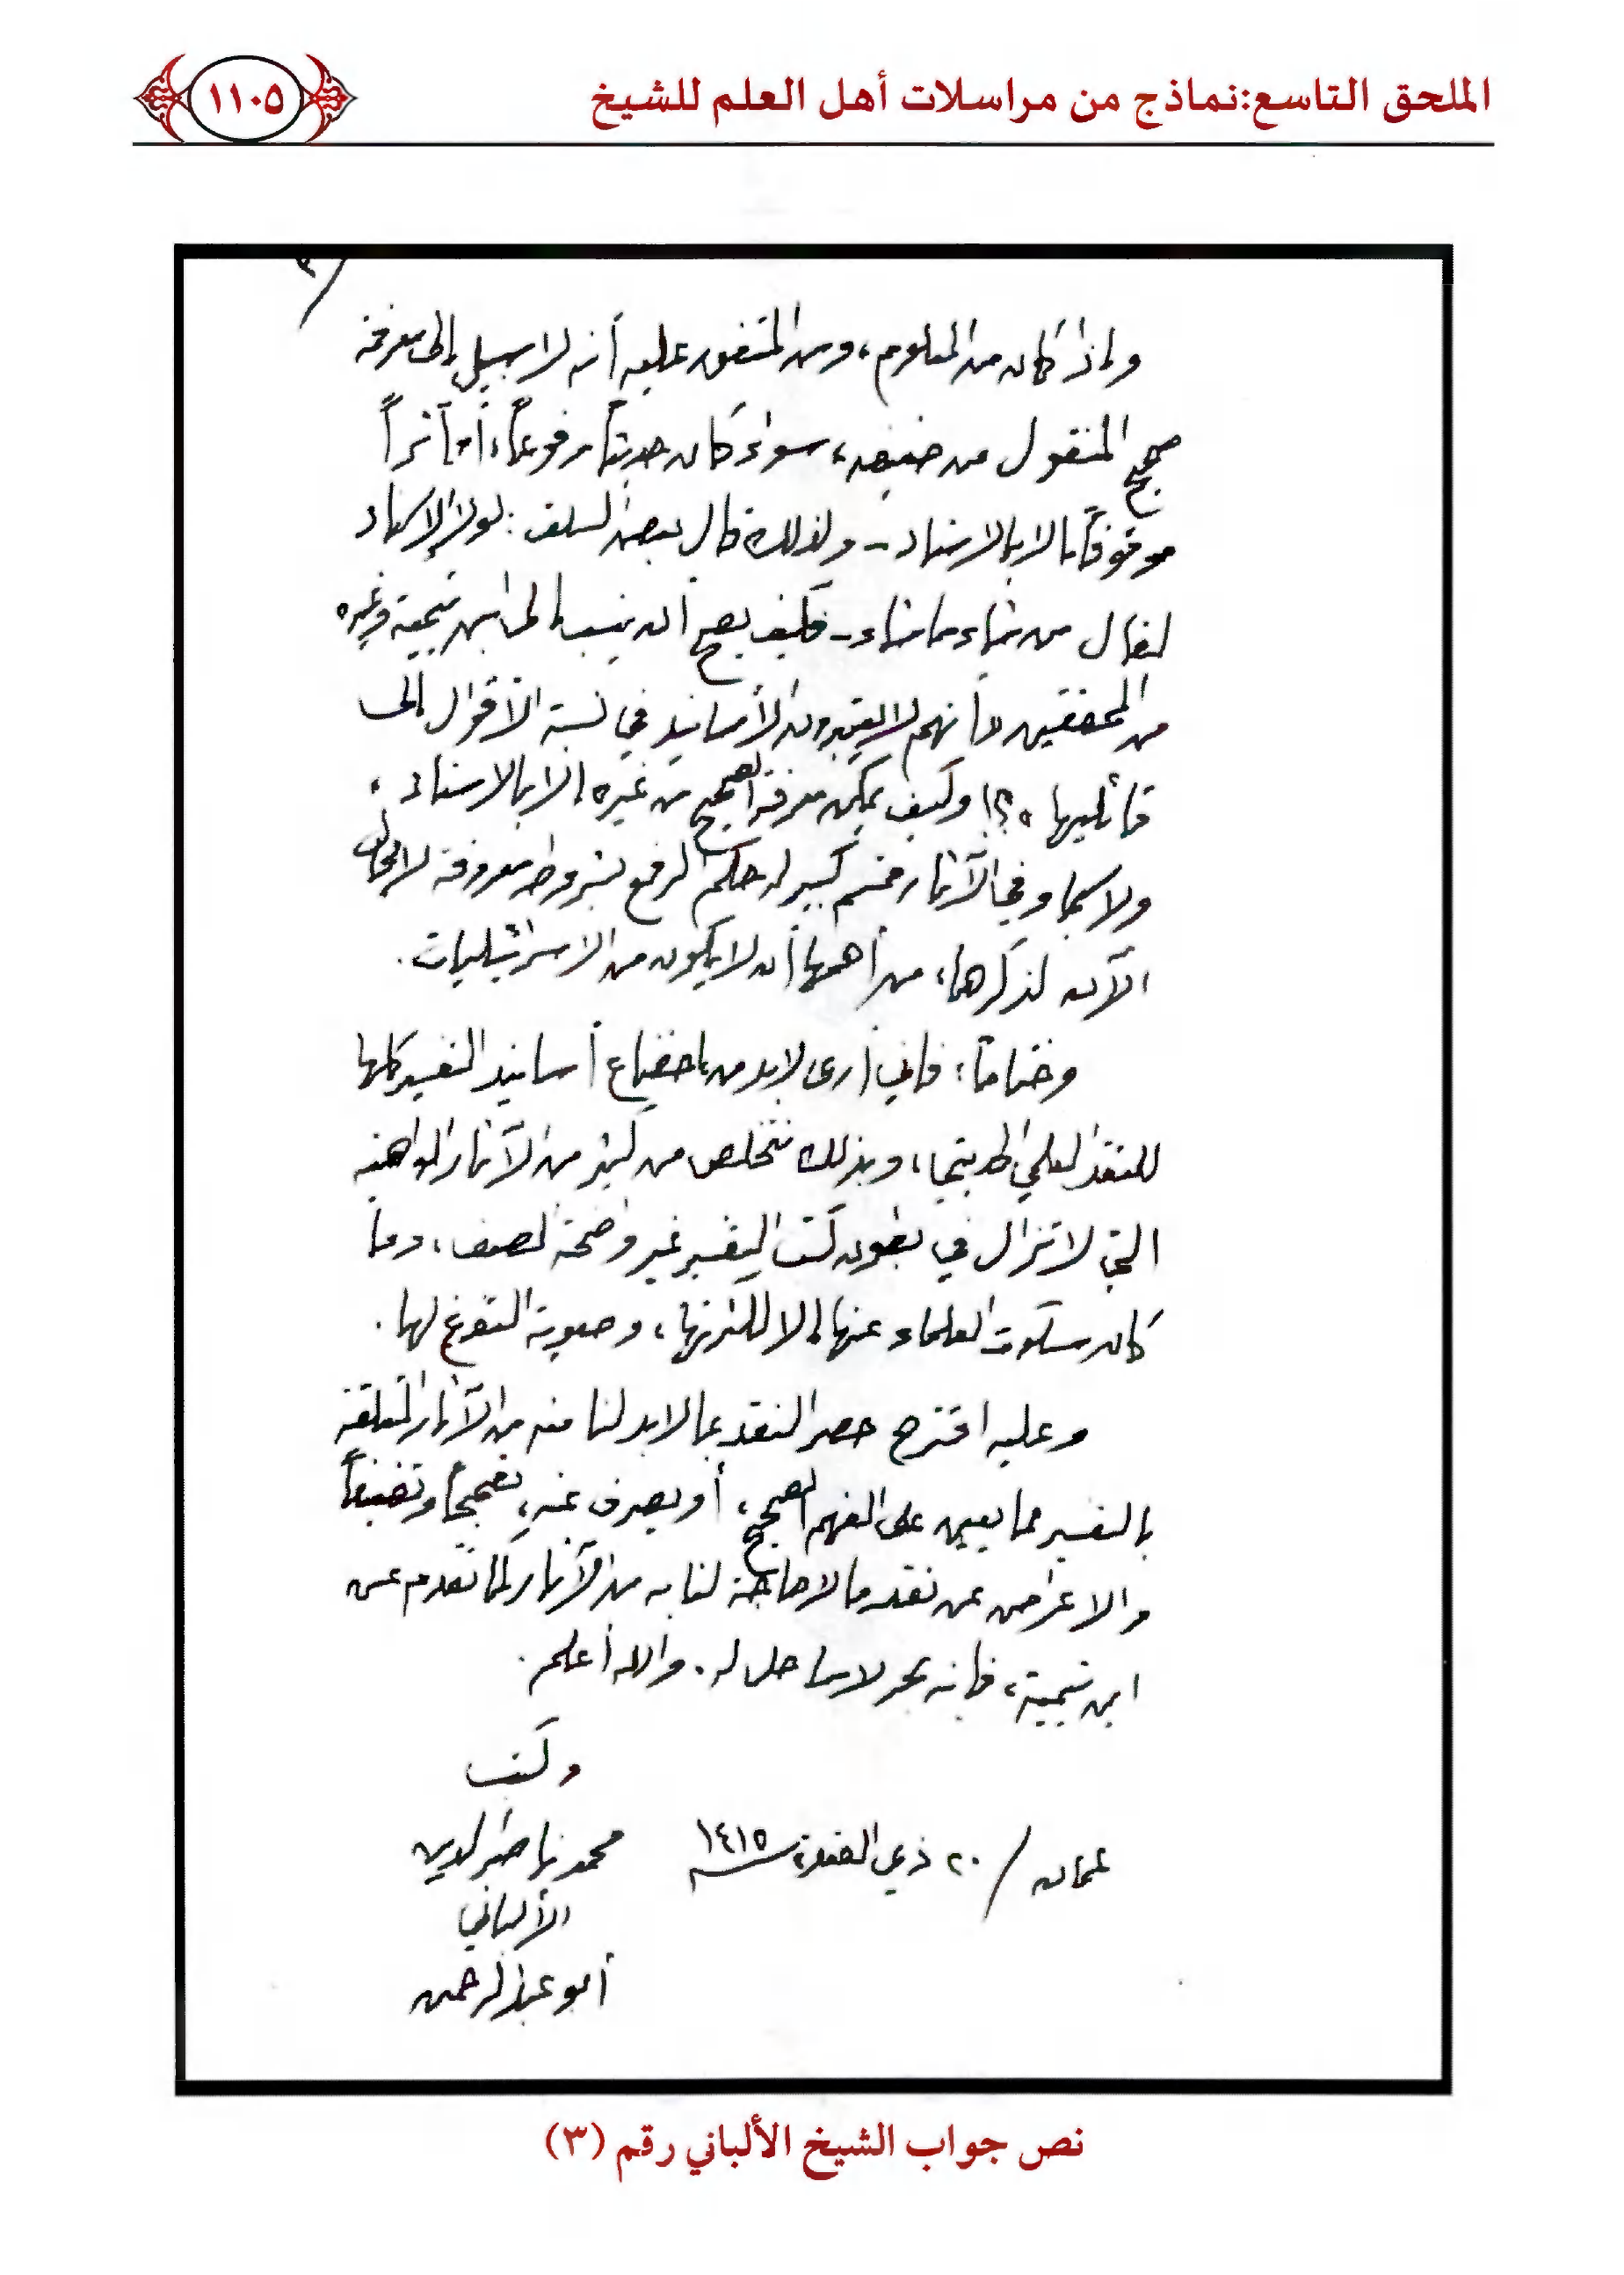 الملحق التاسع:نماذج من مراسلات أهل العلم للشيخ
١١٠٥
٣/
وإذا كان من المعلوم، ومن المتفق عليه أنه لا سبيل إلى معرفة
صحيح المنقول من ضعيفه، سواء كان حديثاً مرفوعاً، أو أثراً
موقوفاً إلا بالاسناد - ولذلك قال بعض السلف: لولا الإسناد
لقال من شاء ما شاء - فكيف يصح أن ينسب إلى ابن تيمية وغيره
من المحققين أنهم لا يعتبرون الأسانيد في نسبة الأقوال إلى
قائليها؟! وكيف يمكن معرفة الصحيح من غيره إلا بالاسناد،
ولا سيما وفي الآثار قسم كبير له حكم الرفع بشروط معروفة لا مجال
الآن لذكرها، من أهمها أن لا يكون من الاسرائيليات.
وختاماً: فإني أرى لابد من إخضاع أسانيد التفسير كلها
للنقد العلمي الحديثي، وبذلك نتخلص من كثير من الآثار الواهية
التي لا تزال في بطون كتب التفسير غير واضحة الضعف، وما
كان سكوت العلماء عنها إلا لكثرتها، وصعوبة التفرغ لها.
وعليه اقترح حصر النقد بما لابد لنا منه من الآثار المتعلقة
بالتفسير مما يعين على الفهم الصحيح، أو يصرف عنه، تصحيحاً وتضعيفاً
والاعراض عن نقد ما لا حاجة لنا به من الآثار كما تقدم عن
ابن تيمية، فإنه بحر لا ساحل له. والله أعلم.
وكتب
محمد ناصر الدين
الألباني
أبو عبد الرحمن
عمان / ٢٠ ذي القعدة سنة ١٤١٥
نص جواب الشيخ الألباني رقم (٣)